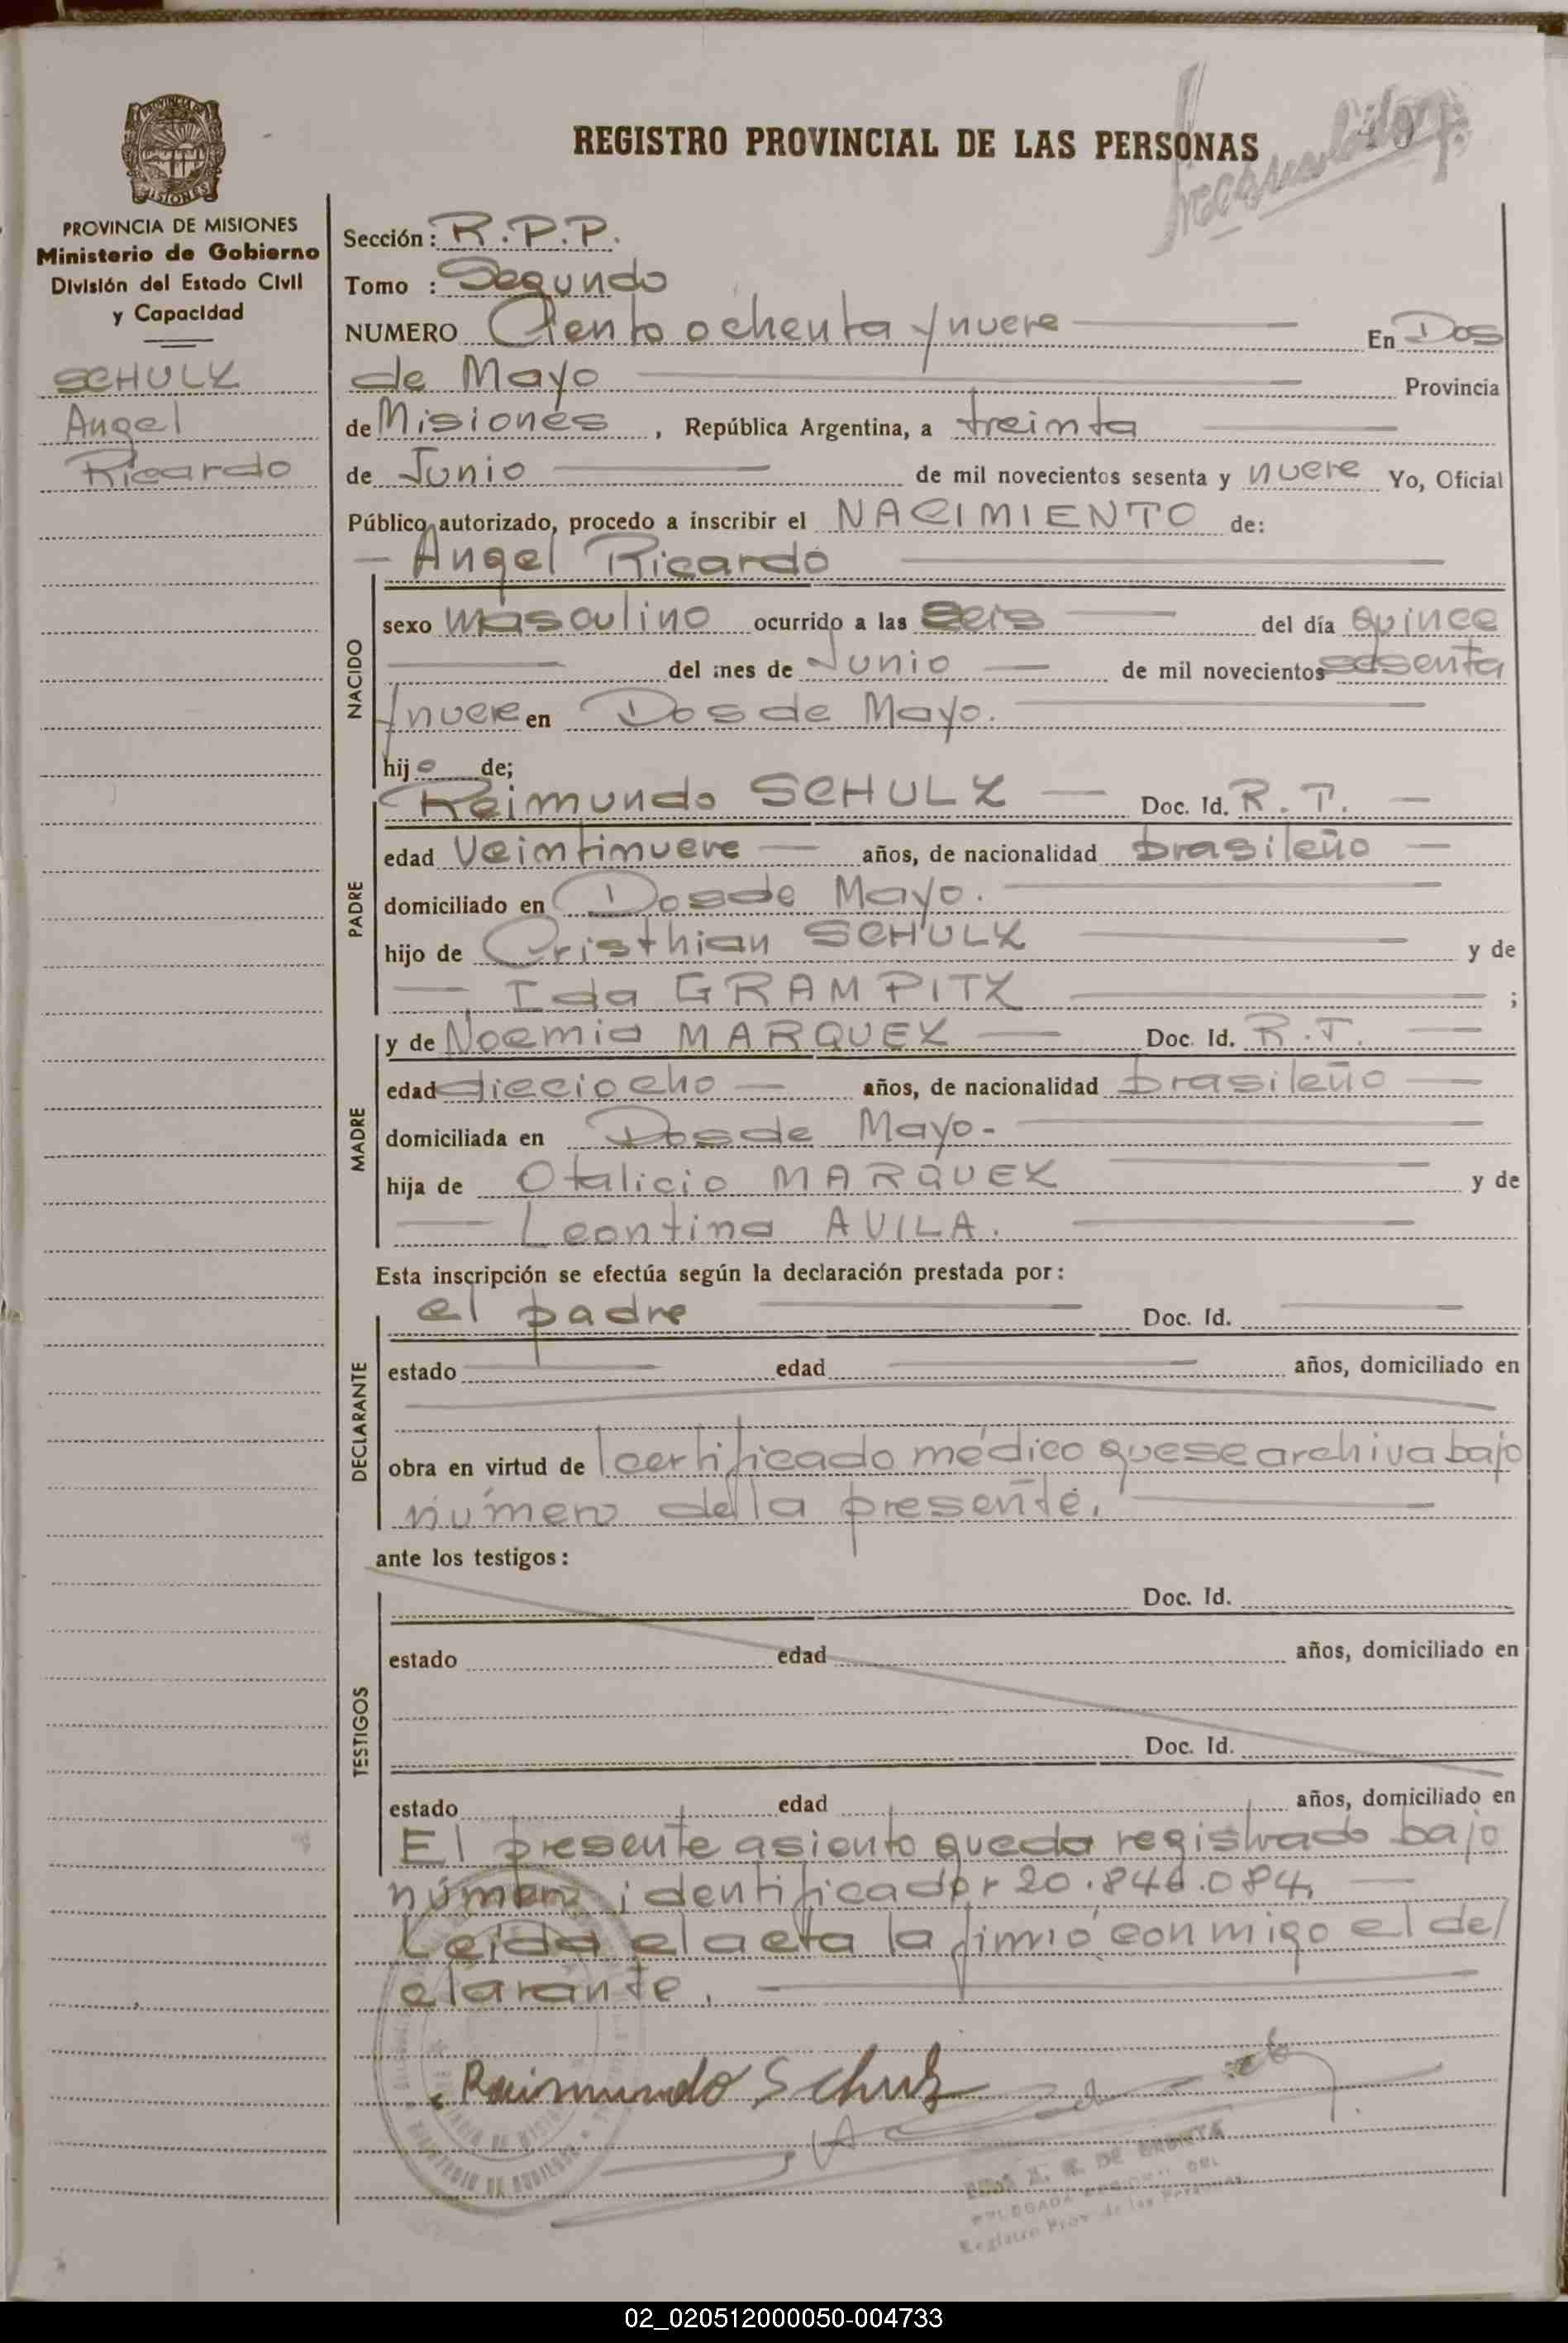 REGISTRO PROVINCIAL DE LAS PERSONAS
PROVINCIA DE MISIONES
Ministerio de Gobierno
División del Estado Civil
y Capacidad
SCHULZ
Angel
Ricardo
Sección: R.P.P.
Tomo : Segundo
NUMERO Ciento ochenta y nueve En Dos
de Mayo Provincia
de Misiones, República Argentina, a treinta
de Junio de mil novecientos sesenta y nueve Yo, Oficial
Público autorizado, procedo a inscribir el NACIMIENTO de:
Angel Ricardo
NACIDO
sexo masculino ocurrido a las seis del día quince
del mes de Junio de mil novecientos sesenta
y nueve en Dos de Mayo.
hijo de;
PADRE
Reimundo SCHULZ Doc. Id. R.T.
edad Veintinueve años, de nacionalidad brasileño
domiciliado en Dos de Mayo.
hijo de Cristhian SCHULZ y de
Ida GRAMPITZ ;
MADRE
y de Noemia MARQUEZ Doc. Id. R.T.
edad dieciocho años, de nacionalidad brasileño
domiciliada en Dos de Mayo-
hija de Otalicio MARQUEZ y de
Leontina AVILA.
Esta inscripción se efectúa según la declaración prestada por:
DECLARANTE
el padre Doc. Id.
estado edad años, domiciliado en
obra en virtud de certificado médico que se archiva bajo
número de la presente.
ante los testigos:
TESTIGOS
Doc. Id.
estado edad años, domiciliado en
Doc. Id.
estado edad años, domiciliado en
El presente asiento queda registrado bajo
número identificador 20.846.084,
Leída el acta la firmó conmigo el de/
clarante.
Raimundo Schulz
Registro Prov. de las Personas
02_020512000050-004733